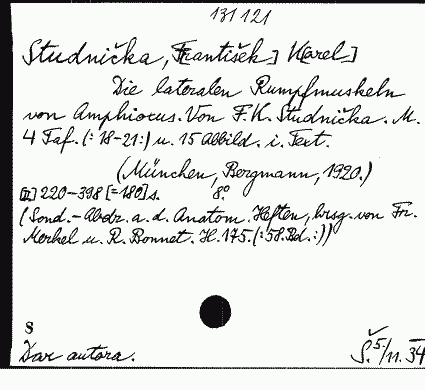 131121
Studnička, F[rantišek] K[arel]
Die lateralen Rumpfmuskeln
von Amphioxus. Von F.K. Studnička. M.
4 Taf. (: 18-21:) u. 15 Abbild. i. Text.
(München, Bergmann, 1920.)
[II] 220-398 [=180] s. 8°
(Sond.-Abdr. a. d. Anatom. Heften, hrsg. von Fr.
Merkel u. R. Bonnet. H. 175. (: 58. Bd. :))
8
Dar autora.
Š. 5/11. 34